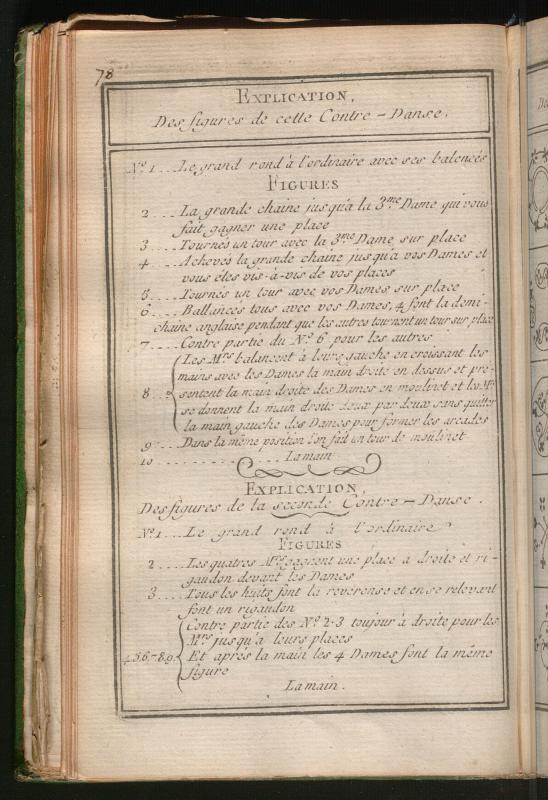 78
EXPLICATION,
Des figures de cette Contre - Danse.
No. 1 ... Le grand rond à l'ordinaire avec ses balencés
FIGURES
2 .... La grande chaine jusqu'a la 3.me Dame qui vous
fait gagner une place
3 .... Tournés un tour avec la 3.me Dame sur place
4 .... Achevés la grande chaine jusqu'a vos Dames et
vous etes vis-à-vis de vos places
5 .... Tournés un tour avec vos Dames sur place
6 .... Ballancés tous avec vos Dames, 4 font la demi-
chaine anglaise pendant que les autres tournent un tour sur place
7 .... Contre partie du No. 6 pour les autres
Les Mrs balancent à leurs gauche en croissant les
mains avec les Dames la main droite en dessus et pre-
8 .. sentent la main droite des Dames en moulinet et les Mrs
se donnent la main droite deux par deux sans quitter
la main gauche des Dames pour former les arcades
9 .... Dans la même position l'on fait un tour de moulinet
10 .............. La main
EXPLICATION,
Des figures de la seconde Contre - Danse.
No. 1 .... Le grand rond à l'ordinaire
FIGURES
2 .... Les quatres Mrs gagnent une place à droite et ri-
gaudon devant les Dames
3 .... Tous les huits font la reverense et en se relevant
font un rigaudon
Contre partie des No. 2.3 toujour à droite pour les
Mrs jusqu'a leurs places
4.5.6.7.8.9. Et aprés la main les 4 Dames font la même
figure
La main.